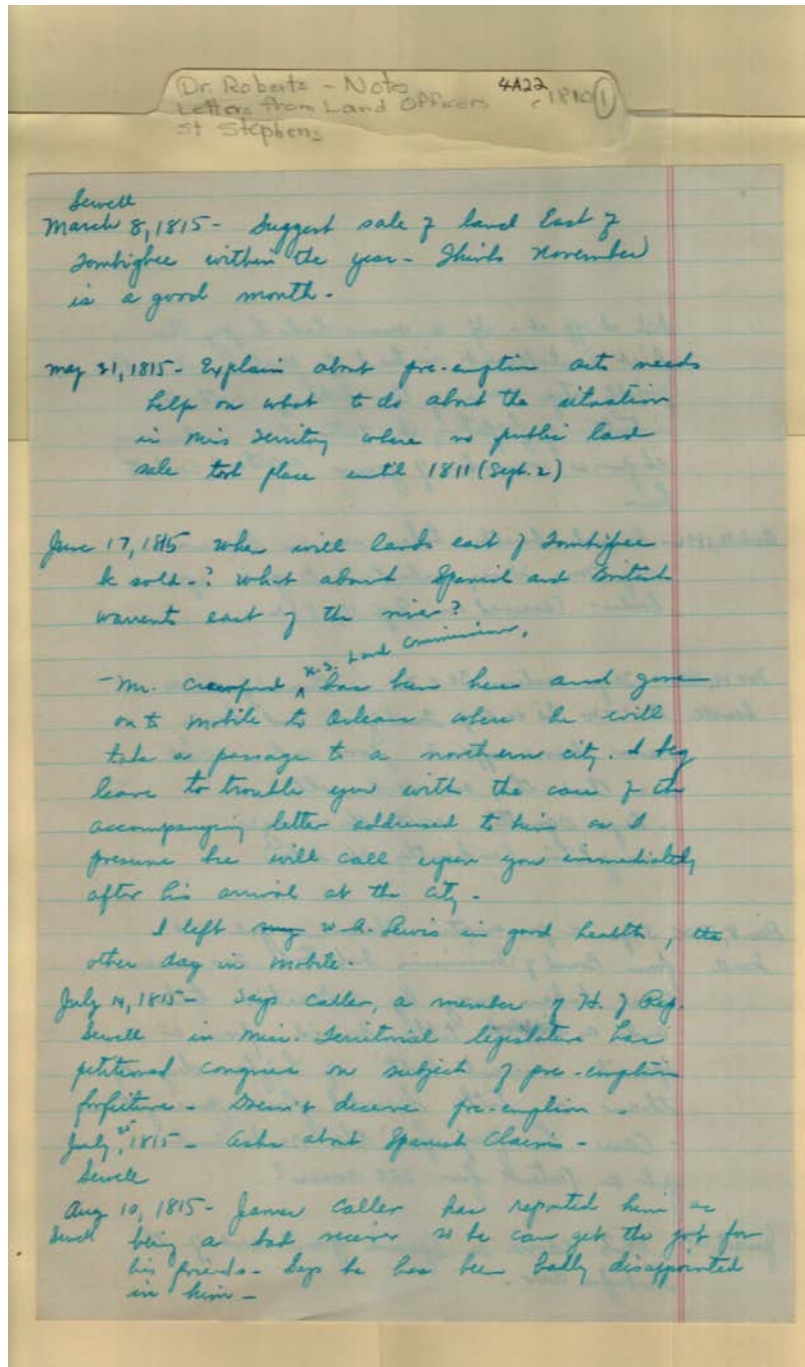 Dr. Roberts - Notes 4A22
Letters from Land Officers c 1810 (1)
St Stephens
Sewell
March 8, 1815 - Suggest sale of land East of
Tombigbee within the year - Thinks November
is a good month.
May 21, 1815 - Explain about pre-emption acts needs
help on what to do about the situation
in Miss Territory where no public land
sale took place until 1811 (Sept. 2)
June 17, 1815 When will lands east of Tombigbee
be sold -? What about Spanish and British
warrents east of the river?
- Mr. Crawford ^ U.S. Land Commissioner, has been here and gone
on to Mobile to Orleans where he will
take a passage to a northern city. I beg
leave to trouble you with the care of the
accompanying letter addressed to him as I
presume he will call upon you immediately
after his arrival at the city.
I left W.A. Lewis in good health, the
other day in Mobile.
July 14, 1815 - Says Caller, a member of H. of Rep.
Sewell in Miss. Territorial legislature has
petitioned congress on subject of pre-emption
forfeiture - deserve pre-emption -
July 25, 1815 - asks about Spanish Claims -
Sewell
Aug 10, 1815 - James Caller has reported him as
Sewell being a bad receiver so he can get the job for
his friends - Says he has been badly disappointed
in him -